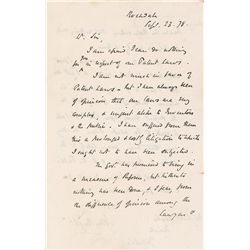 Rochdale
Sept. 23. 78.
Dr. Sir,
I am afraid I can do nothing
for you in respect of our Patent Laws.
I am not much in favor of
Patent Laws - but I have always been
of opinion that our Laws are very
complex, & unjust alike to Inventors
& the Public. I have suffered from them
this in a prolonged & costly litigation to which
I ought not to have been subjected.
The Govt. has promised to bring in
a measure of Reform, but hitherto
nothing has been done, & I fear from
the difference of opinion among the
Lawyers